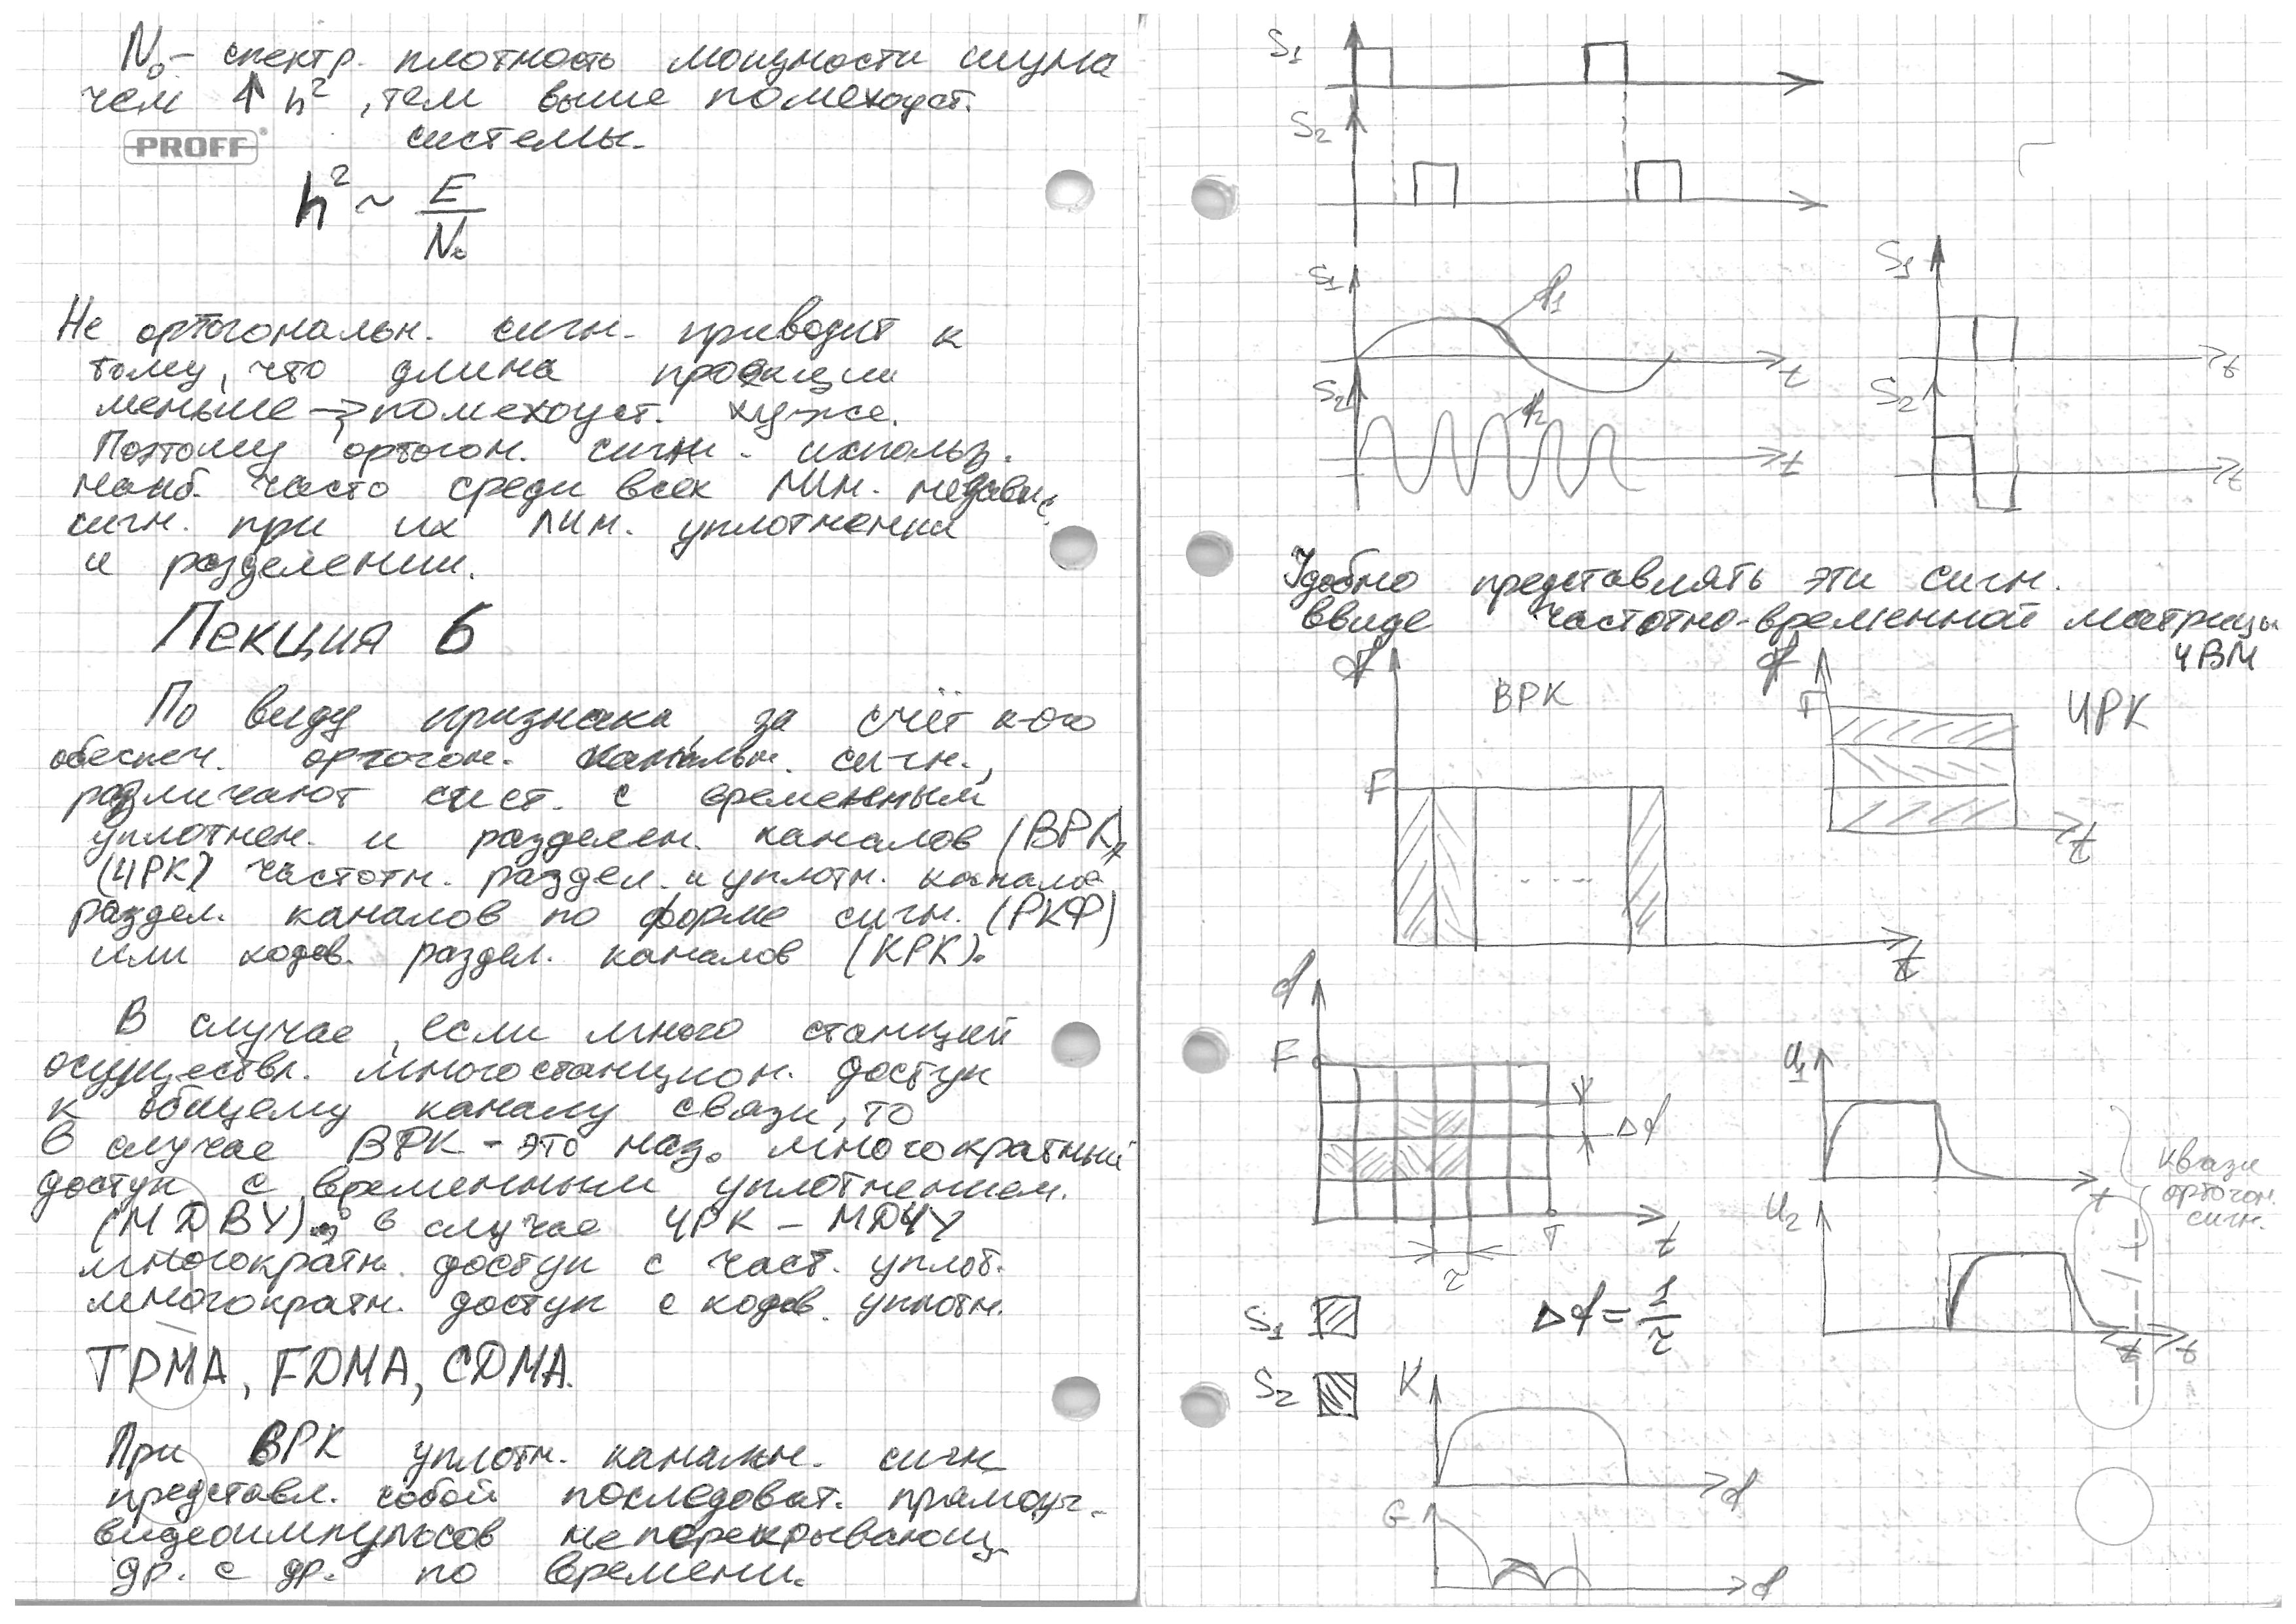 N₀ – спектр. плотность мощности шума
чем ↑ h², тем выше помехоуст.
системы.
PROFF®
h² ~ E/N₀
Не ортогональн. сигн. приводит к
тому, что длина проекции
меньше → помехоуст. хуже.
Поэтому ортогон. сигн. использ.
наиб. часто среди всех лин. независ.
сигн. при их лин. уплотнении
и разделении.
Лекция 6
По виду признака, за счёт к-ого
обеспеч. ортогон. канальн. сигн.,
различают сист. с временным
уплотнен. и разделен. каналов (ВРК),
(ЧРК) частотн. раздел. и уплотн. каналов
раздел. каналов по форме сигн. (РКФ)
или кодов. раздел. каналов (КРК).
В случае, если много станций
осуществл. многостанцион. доступ
к общему каналу связи, то
в случае ВРК - это наз. многократный
доступ с временным уплотнением.
(МДВУ), в случае ЧРК – МДЧУ
многократн. доступ с част. уплот.
многократн. доступ с кодов. уплотн.
TDMA, FDMA, CDMA.
При ВРК уплотн. канальн. сигн.
представл. собой последоват. прямоуг.
видеоимпульсов не перекрывающ.
др. с др. по времени.
S₁
S₂
S₁
f₁
t
S₂
f₂
t
S₁
t
S₂
t
Удобно представлять эти сигн.
ввиде частотно-временной матрицы
ЧВМ
f
ВРК
F
t
f
F
ЧРК
t
f
F
Δf
T
t
τ
S₁
Δf = 1/τ
S₂
U₁
t
квази
ортогон.
сигн.
U₂
t
t
K
f
G
f